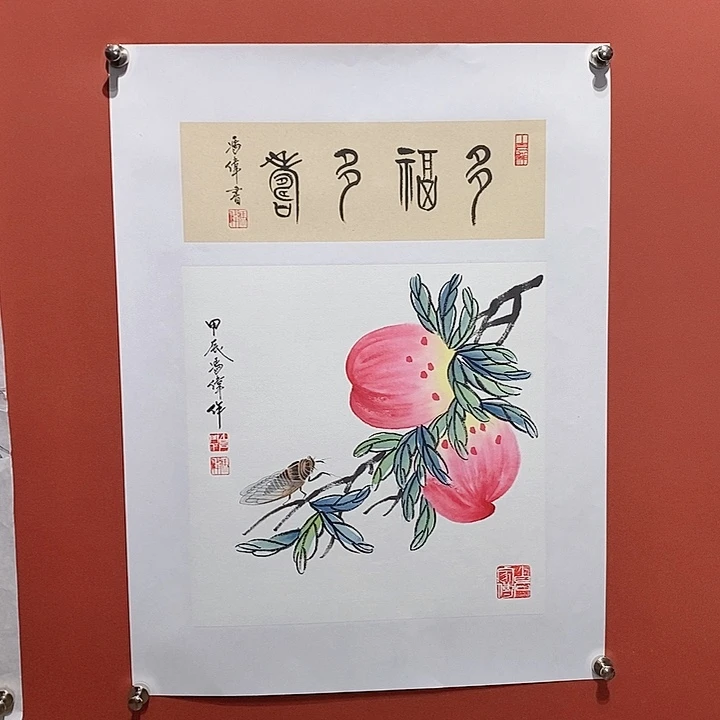 多福多壽
馮偉書
甲辰馮偉作